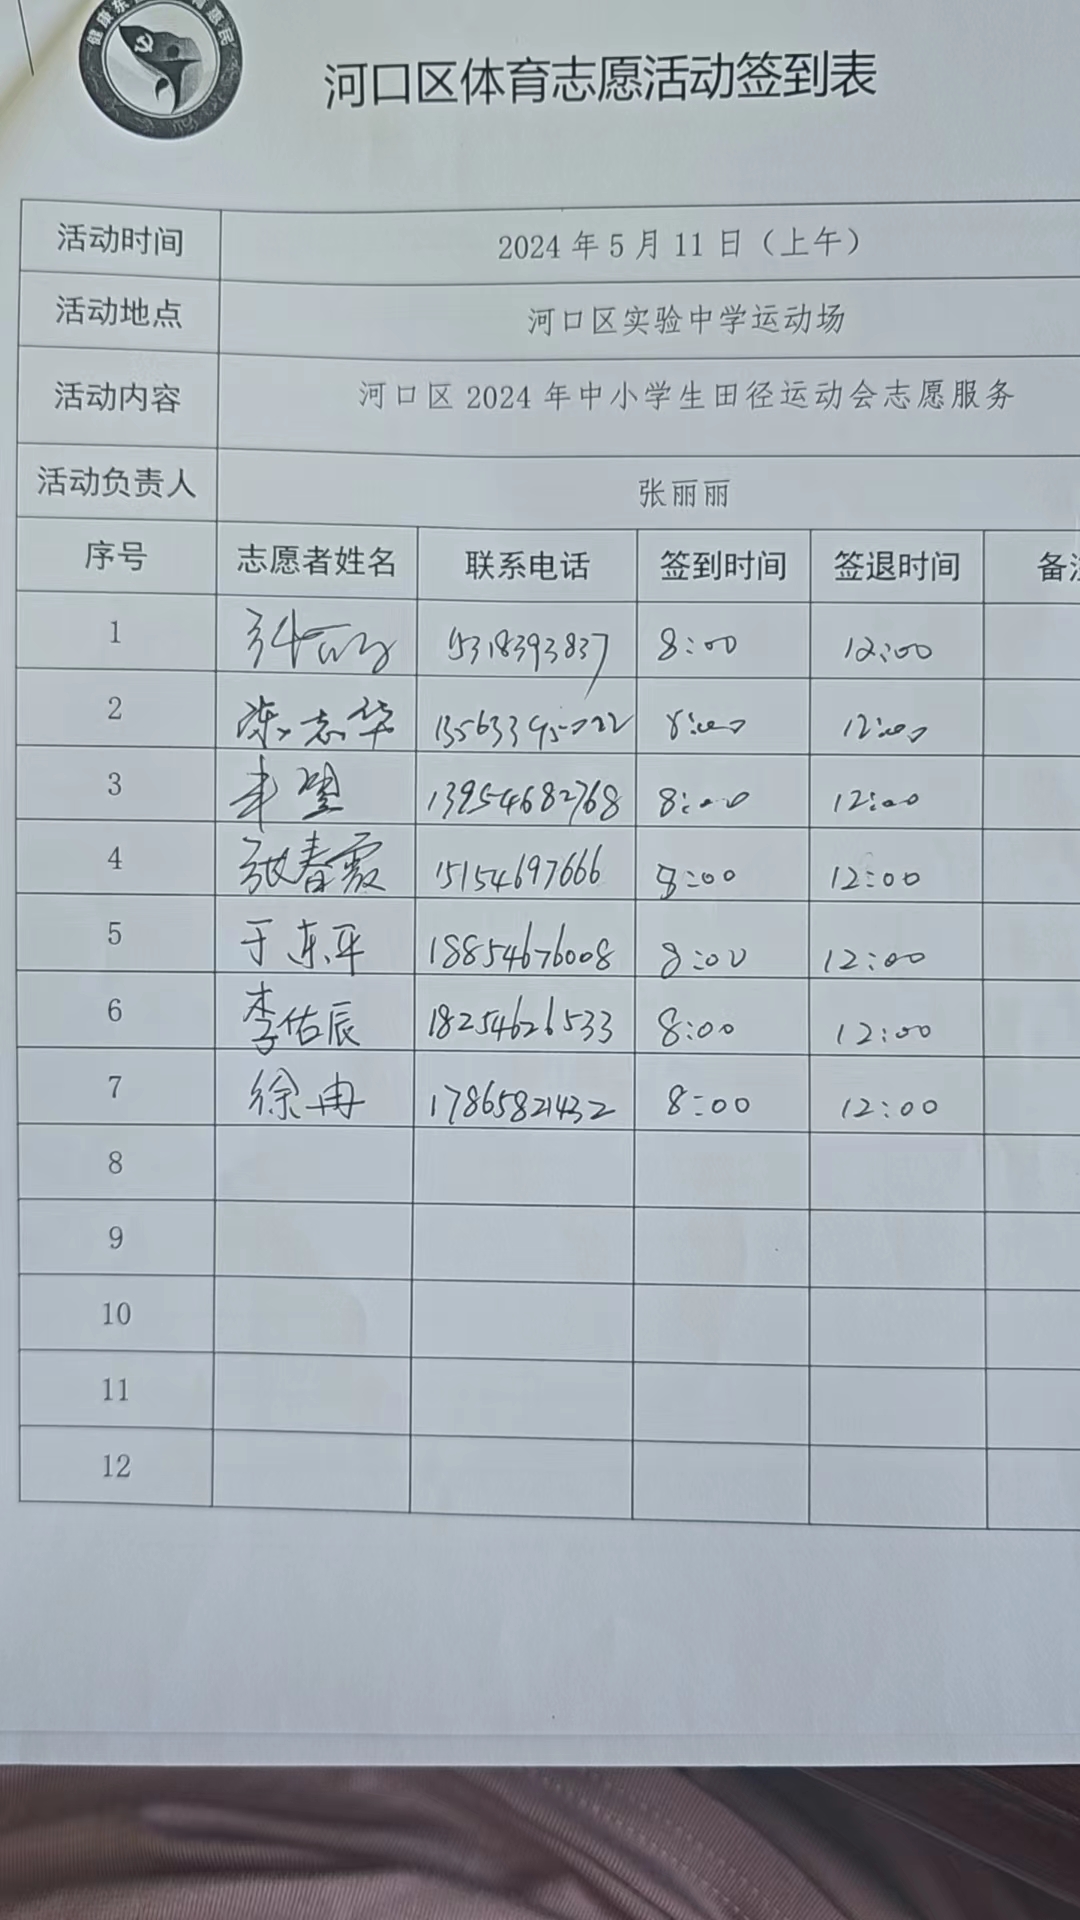 河口区体育志愿活动签到表
活动时间 2024年5月11日（上午）
活动地点 河口区实验中学运动场
活动内容 河口区2024年中小学生田径运动会志愿服务
活动负责人 张丽丽
序号 志愿者姓名 联系电话 签到时间 签退时间
1 8:00 12:00
2 陈志华 8:00 12:00
3 13954682768 8:00 12:00
4 张春霞 15154697666 8:00 12:00
5 于东平 18854676008 8:00 12:00
6 李佑辰 18254626533 8:00 12:00
7 徐冉 17865821432 8:00 12:00
8
9
10
11
12